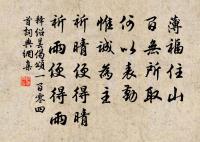 薄福住山
百無所取
何以表勤
惟誠為主
祈晴便得晴
祈雨便得雨
釋紹曇偈頌一百零四
首詞典網集